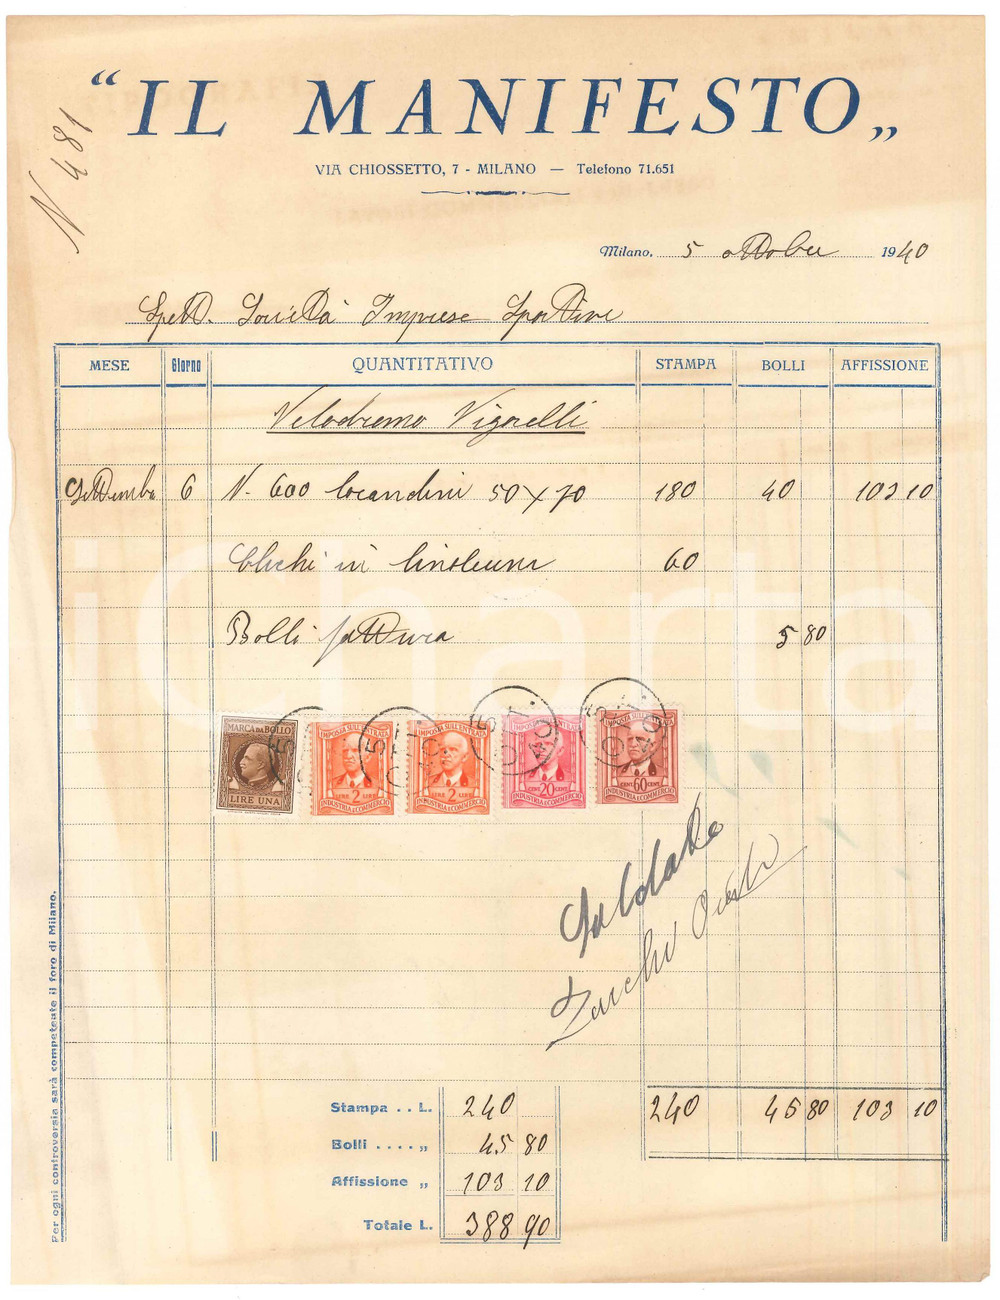 "IL MANIFESTO„
VIA CHIOSSETTO, 7 - MILANO — Telefono 71.651
N 481
Milano, 5 ottobre 1940
Spett. Società Imprese Sportive
MESE Giorno QUANTITATIVO STAMPA BOLLI AFFISSIONE
Velodromo Vigorelli
Settembre 6 N. 600 locandini 50 x 70 180 40 103 10
Clichi in linoleum 60
Bolli fattura 5 80
MARCA DA BOLLO
LIRE UNA
IMPOSTA SULL'ENTRATA
LIRE 2 LIRE
INDUSTRIA E COMMERCIO
IMPOSTA SULL'ENTRATA
LIRE 2 LIRE
INDUSTRIA E COMMERCIO
IMPOSTA SULL'ENTRATA
CENT 20 CENT
INDUSTRIA E COMMERCIO
IMPOSTA SULL'ENTRATA
CENT 60 CENT
INDUSTRIA E COMMERCIO
5 OTT. 40
iCharta
Saldato
Stampa . . L. 240 240 45 80 103 10
Bolli . . . . „ 45 80
Affissione „ 103 10
Totale L. 388 90
Per ogni controversia sarà competente il foro di Milano.